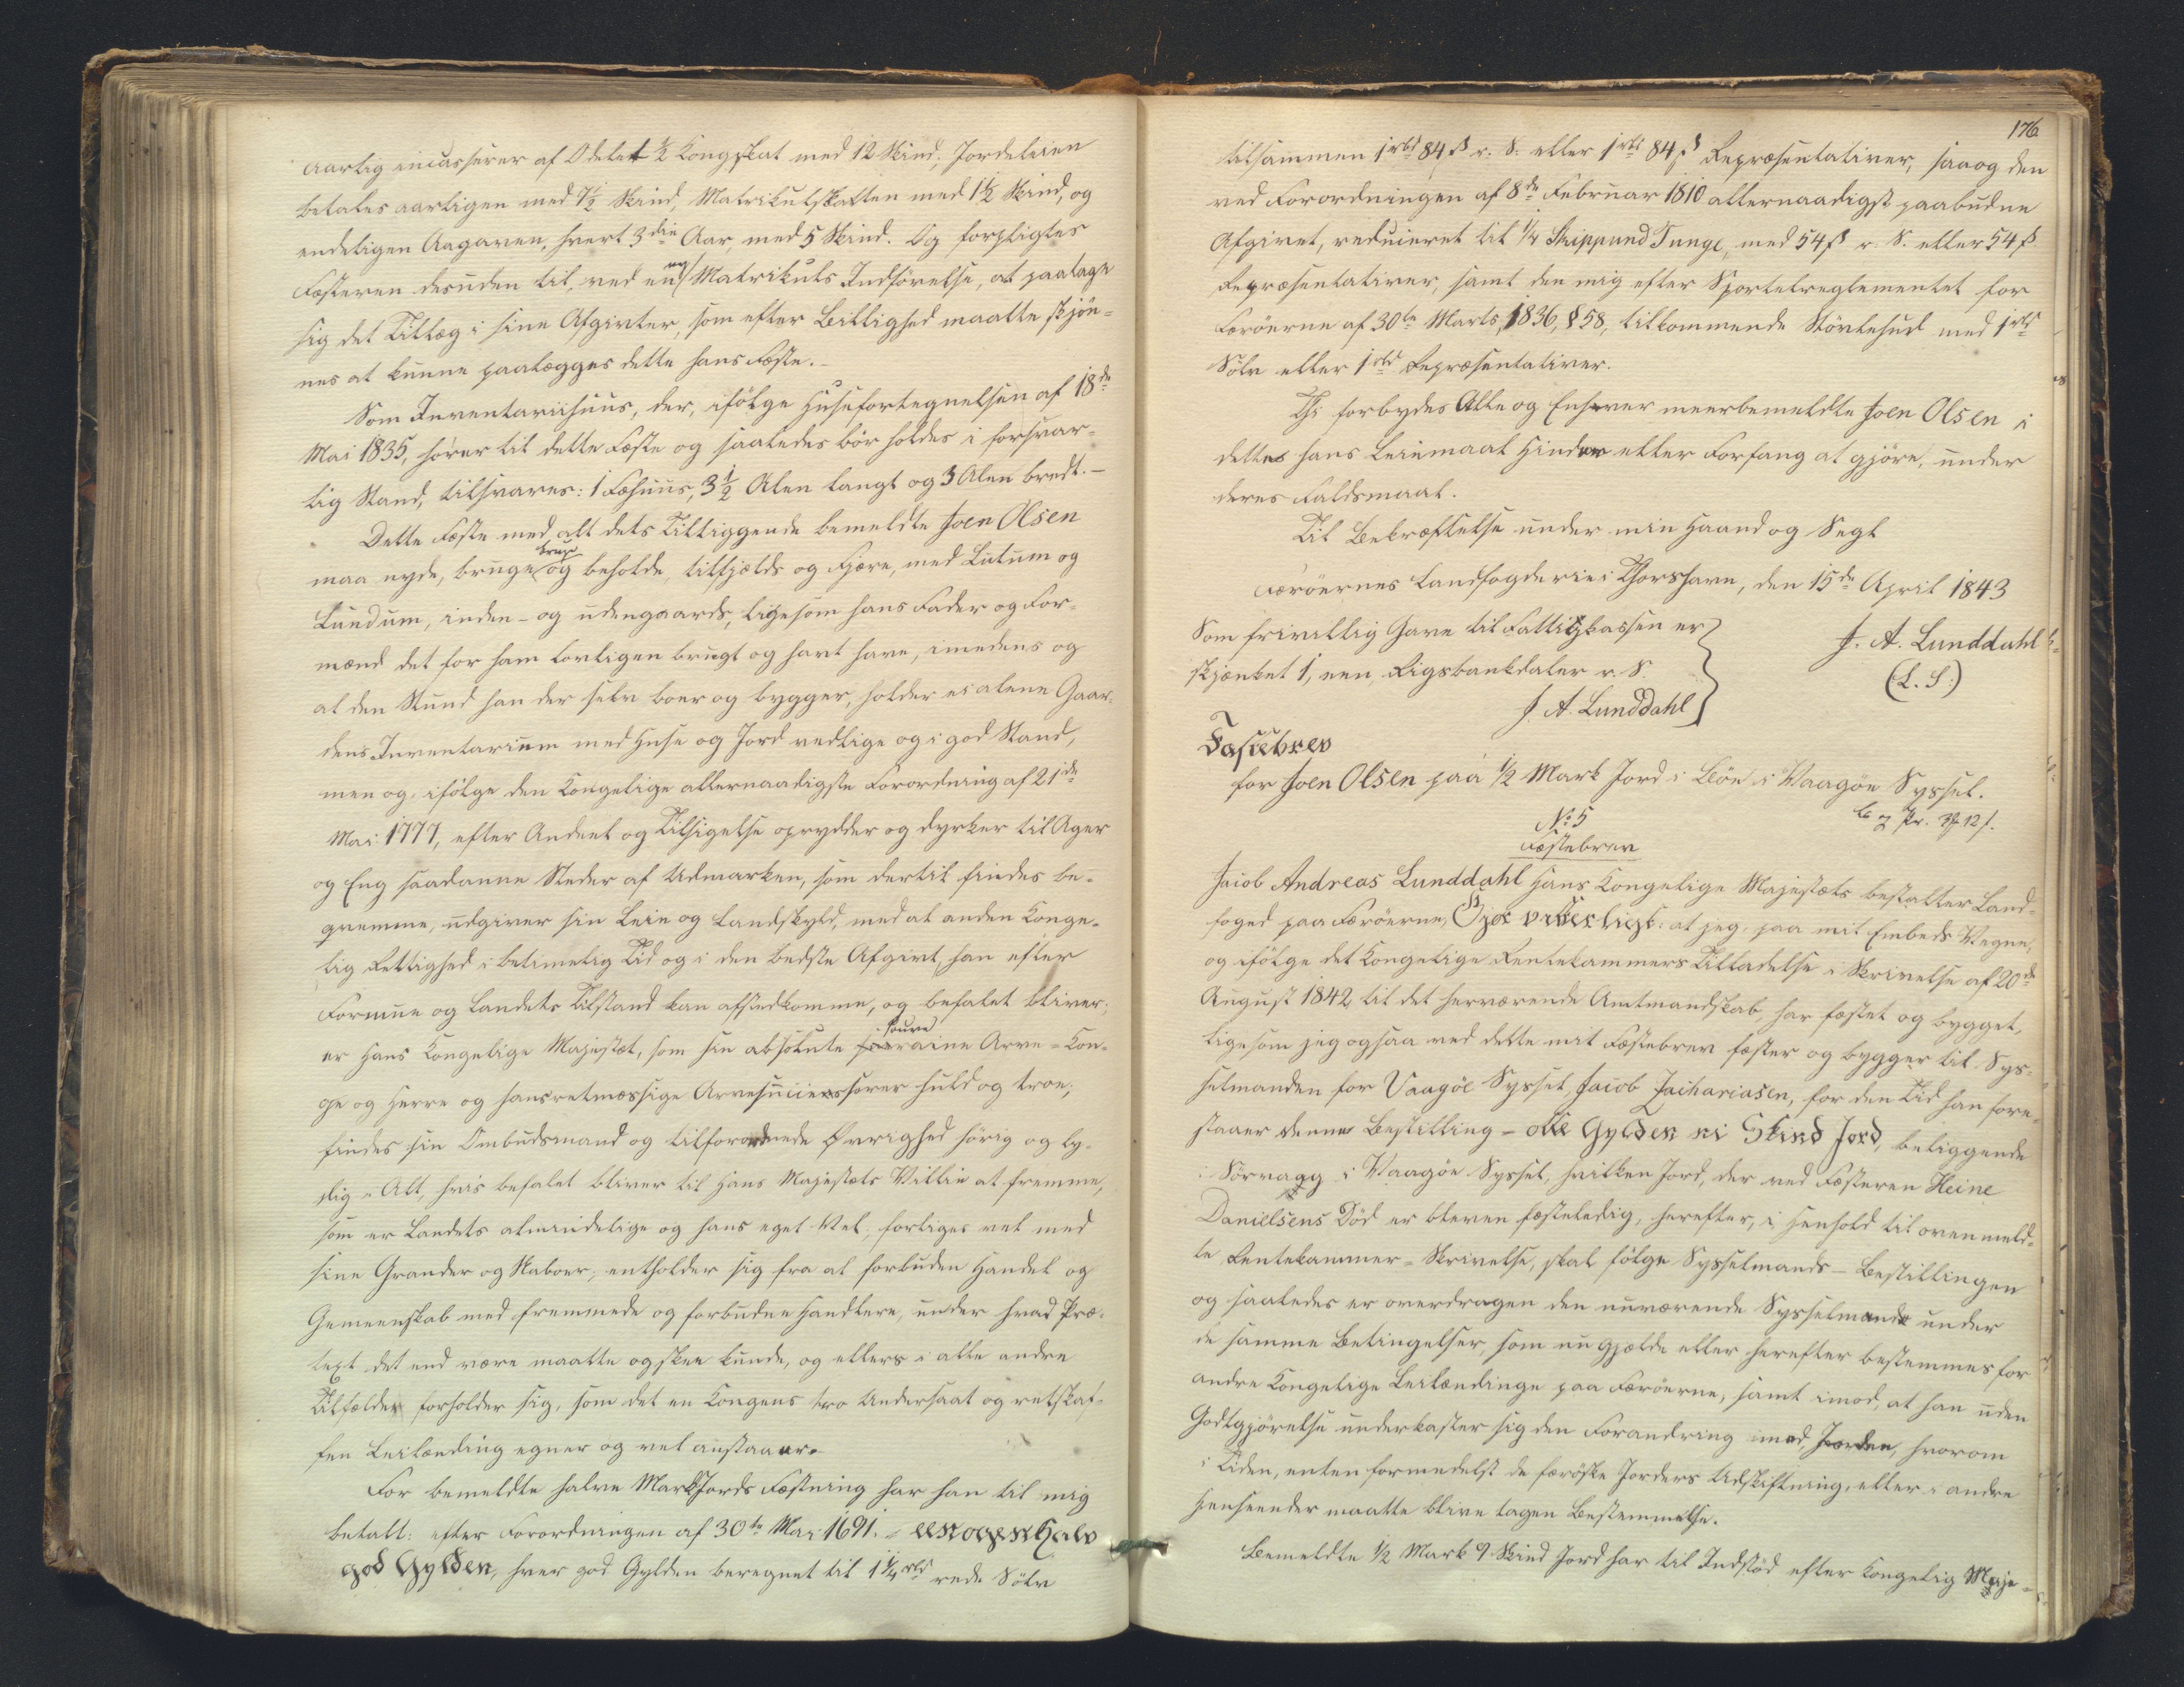 aarlig incasserer af Odelet ½ Kongskat med 12 Skind; Jordeleien
betales aarligen med 7½ Skind, Matrikulskatten med 1½ Skind, og
endeligen Aagaven, hvert 3die Aar, med 5 Skind. Og forpligtes
Fæsteren desuden til, ved en ny Matrikuls Indførelse, at paatage
sig det Tillæg i sine Afgivter, som efter Billighed maatte skjøn-
nes at kunne paalægges dette hans Fæste.
Som Inventariihuus, der, ifølge Husefortegnelsen af 18de
Mai 1835, hører til dette Fæste og saaledes bør holdes i forsvar-
lig Stand, tilsvares: 1 Fæhuus, 3½ Alen langt og 3 Alen bredt.—
Dette Fæste med alt dets Tilliggende bemeldte Joen Olsen
maa nyde, bruge og beholde, tilfjælds og Fjære, med Lutum og
Lundum, inden- og udengaards, ligesom hans Fader og For-
mænd det for ham lovligen brugt og havt have, imedens og
al den Stund han der selv boer og bygger, holder ei alene Gaar-
dens Inventarium med Huse og Jord vedlige og i god Stand,
men og, ifølge den Kongelige allernaadigste Forordning af 21de
Mai 1777, efter Andeel og Tilsigelse oprydder og dyrker til Ager
og Eng saadanne Steder af Udmarken, som dertil findes be-
qvemme, udgiver sin Leie og Landskyld, med al anden Konge-
lig Rettighed i betimelig Tid og i den bedste Afgivt, han efter
Formue og Landets Tilstand kan afstedkomme, og befalet bliver;
er Hans Kongelige Majestæt, som sin absolute souveraine Arve-Kon-
ge og Herre og hans retmæssige Arvesuccessorer huld og troe;
findes sin Ombudsmand og tilforordnede Øvrighed hørig og ly-
dig i Alt, hvis befalet bliver til Hans Majestæts Villie at fremme,
som er Landets almindelige og hans eget Vel, forliges vel med
sine Grander og Naboer, entholder sig fra al forbuden Handel og
Gemeenskab med fremmede og forbudne Handlere, under hvad Præ-
text det end være maatte og skee kunde, og ellers i alle andre
Tilfælder forholder sig, som det en Kongens tro Undersaat og retskaf-
fen Leilænding egner og vel anstaaer.
For bemeldte halve Mark Jords Fæstning har han til mig
betalt: efter Forordningen af 30te Mai 1691. - een og en halv
god Gylden, hver god Gylden beregnet til 1¼ rbd rede Sølv
176
tilsammen 1 rbd 84 ß r. S. eller 1 rbd 84 ß Repræsentativer, saa og den
ved Forordningen af 8de Februar 1810 allernaadigst paabudne
Afgivet, reduceret til ¼ Skippund Tunge, med 54 ß r. S. eller 54 ß
Repræsentativer, samt den mig efter Sportelreglementet for
Færøerne af 30te Marts 1836, § 58, tilkommende Størlehud med 1 rbd
Sølv eller 1 rbd Repræsentativer.
Thi forbydes Alle og Enhver meerbemeldte Joen Olsen i
dette hans Leiemaal Hinder eller Forfang at gjøre, under
deres Faldsmaal.
Til Bekræftelse under min Haand og Segl
Færøernes Landfogderie i Thorshavn, den 15de April 1843
Som frivillig Gave til Fattigkassen er
J. A. Lunddahl
skjænket 1, een Rigsbankdaler r. S.
(L. S.)
J. A. Lunddahl
Fæstebrev
for Joen Olsen paa ½ Mark Jord i Bøe i Vaagøe Syssel.
No 5
Fæstebrev
Jacob Andreas Lunddahl Hans Kongelige Majestæts bestalter Land-
foged paa Færøerne, Gjør vitterligt: at jeg, paa mit Embeds Vegne,
og ifølge det Kongelige Rentekammers Tilladelse i Skrivelse af 20de
August 1842 til det herværende Amtmandskab, har fæstet og bygget,
ligesom jeg ogsaa ved dette mit Fæstebrev fæster og bygger til Sys-
selmanden for Vaagøe Syssel, Jacob Zachariasen, for den Tid han fore-
staaer denne Bestilling - otte Gylden ni Skind Jord, beliggende
i Sørvaag i Vaagøe Syssel, hvilken Jord, der ved Fæsteren Heine
Danielsens Død er bleven fæsteledig, herefter, i Henhold til ovenmeld-
te Rentekammer-Skrivelse, skal følge Sysselmands-Bestillingen
og saaledes er overdragen den nuværende Sysselmand under
de samme Betingelser, som nu gjælde eller herefter bestemmes for
andre Kongelige Leilændinge paa Færøerne, samt imod, at han uden
Godtgjørelse underkaster sig den Forandring med Jorden, hvorom
i Tiden, enten formedelst de færøske Jorders Udskiftning, eller i andre
Henseender maatte blive tagen Bestemmelse.
Bemeldte ½ Mark 9 Skind Jord har til Indstød efter Kongelig Maje-